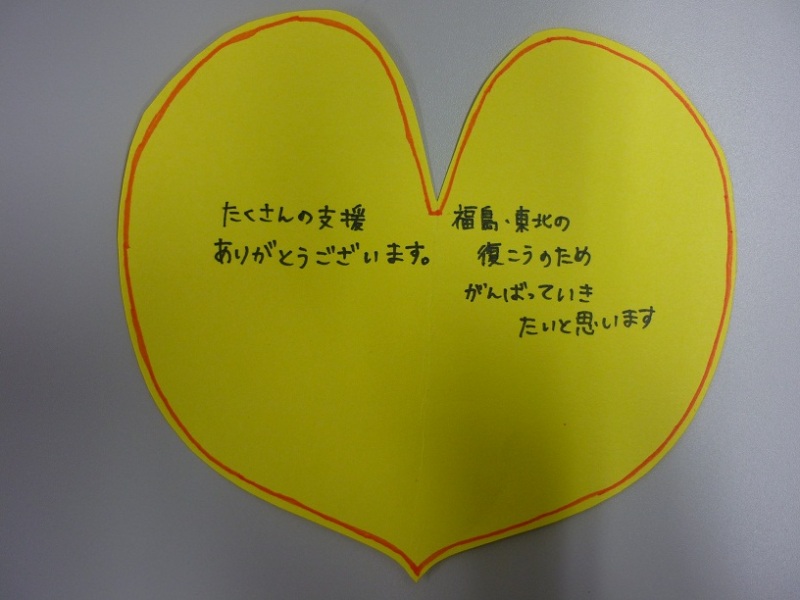 たくさんの支援
ありがとうございます。
福島・東北の
復こうのため
がんばっていき
たいと思います